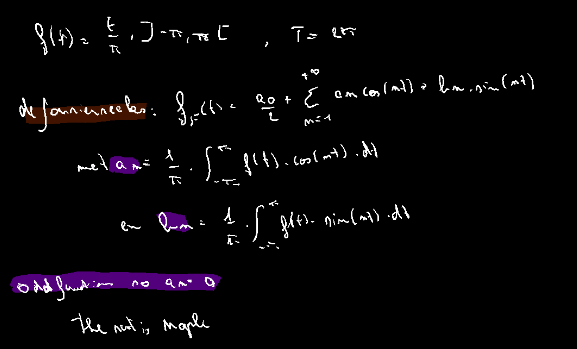 f(t) = t/π , ]-π, π[ , T = 2π
de fourierreeks: f_F(t) = a0/2 + Σ_{n=1}^{+∞} an cos(nt) + bn . sin(nt)
met an = 1/π . ∫_{-π}^{π} f(t) . cos(nt) . dt
en bn = 1/π . ∫_{-π}^{π} f(t) . sin(nt) . dt
odd function so an = 0
the rest is maple